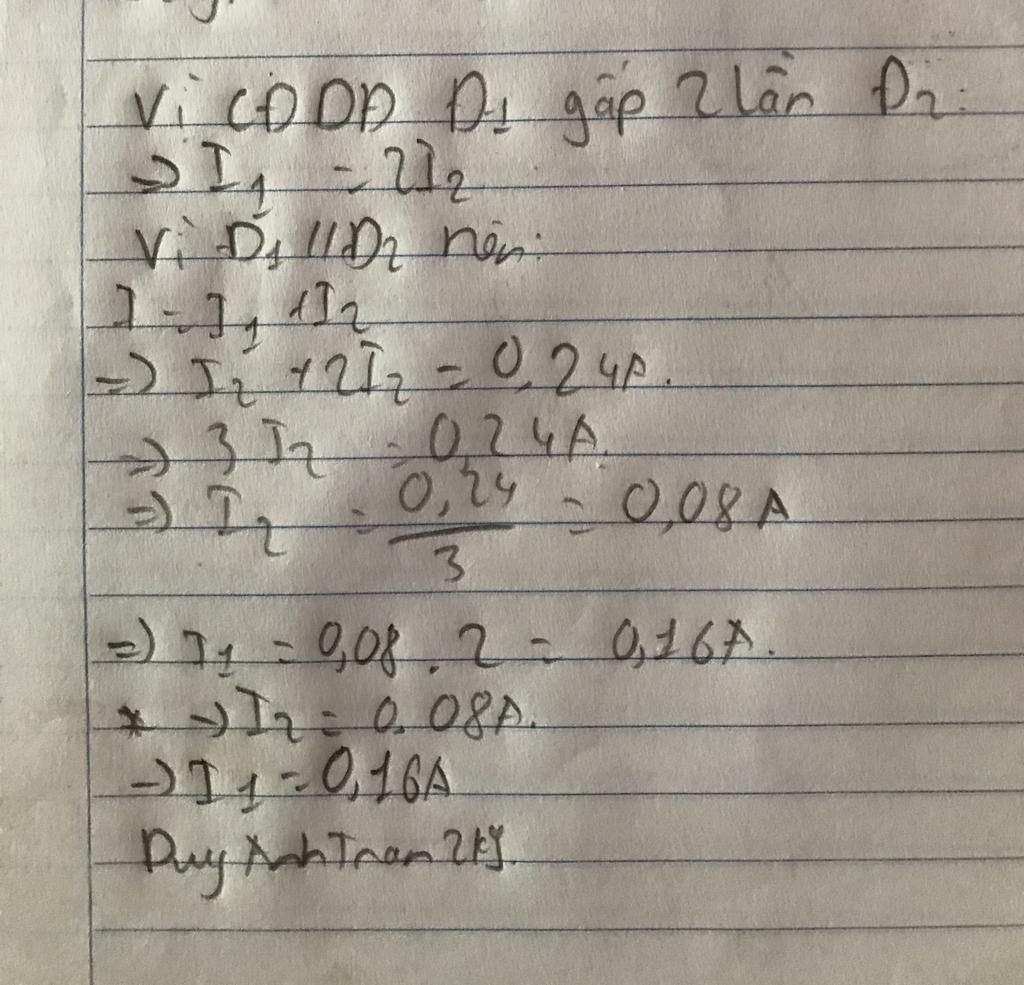 Vì CĐDĐ Đ1 gấp 2 lần Đ2:
=> I1 = 2I2
Vì Đ1 // Đ2 nên:
I = I1 + I2
=> I2 + 2I2 = 0,24A.
=> 3 I2 = 0,24A.
=> I2 = 0,24/3 = 0,08A
=> I1 = 0,08 . 2 = 0,16A.
* -> I2 = 0.08A.
-> I1 = 0,16A
Duy Anh Tran 2k9.